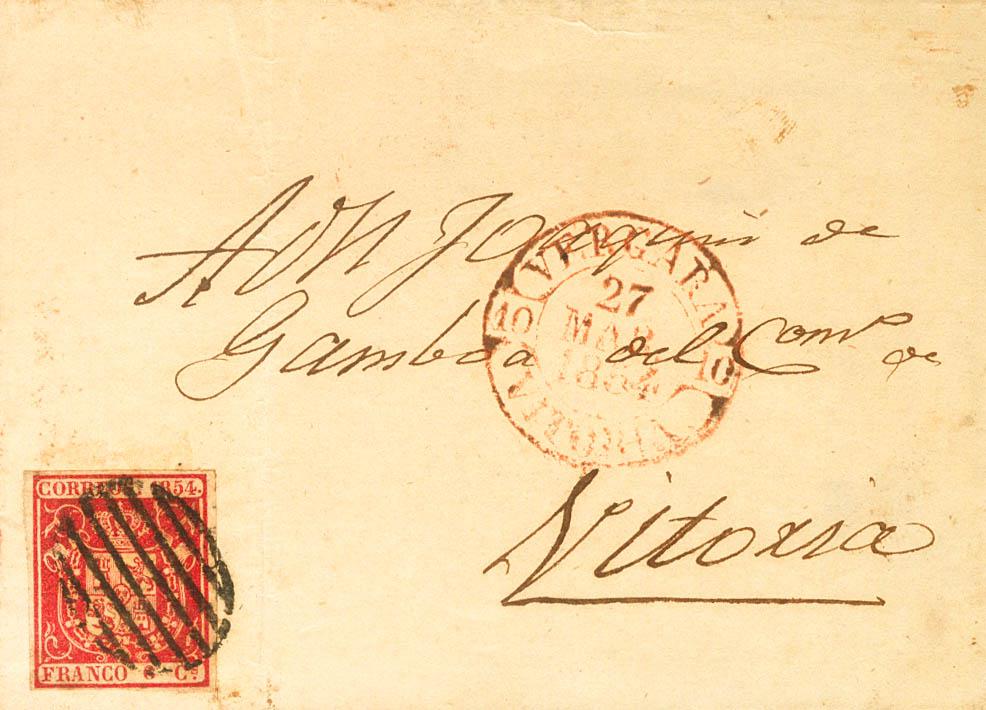 A Dn Joaquin de
Gamboa del Como de
Vitoria
VERGARA
10 27 10
MAR
1854
VITORIA
CORREOS 1854.
FRANCO 6 Cs